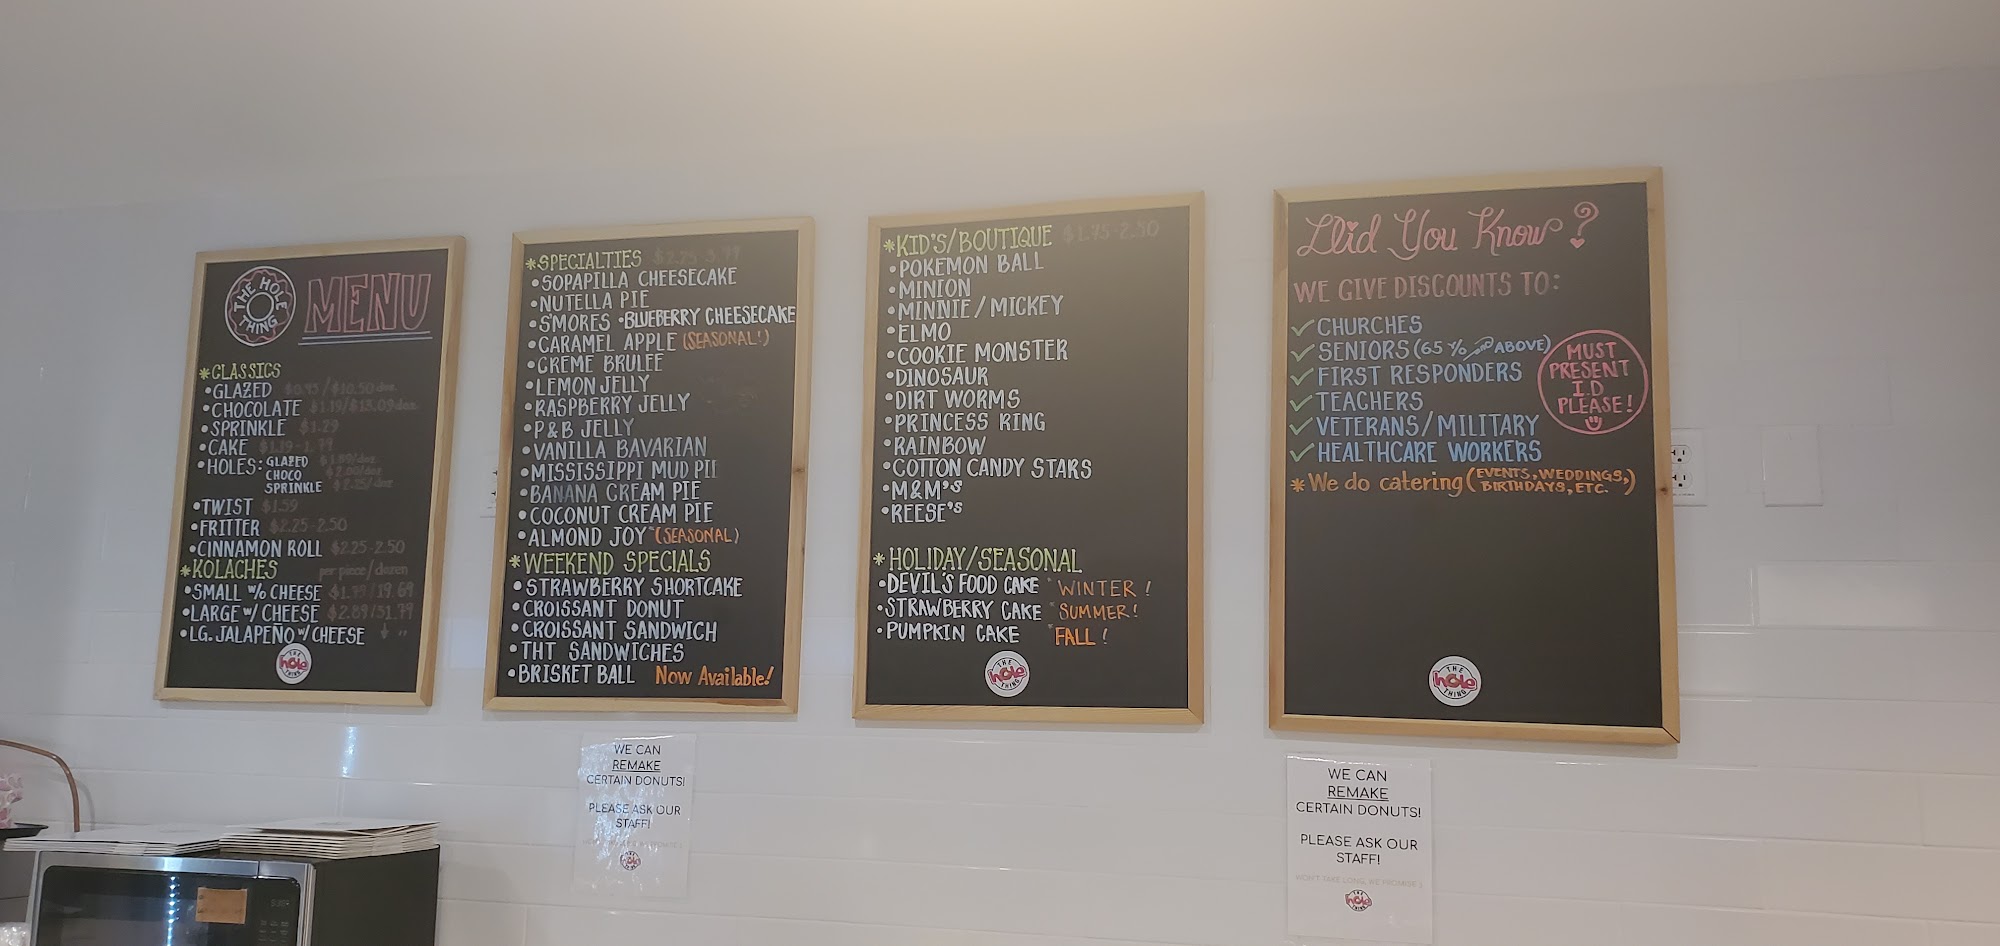 THE HOLE THING
MENU
*CLASSICS
•GLAZED $0.95/$10.50 doz
•CHOCOLATE $1.19/$13.09 doz
•SPRINKLE $1.29
•CAKE $1.19-1.79
•HOLES: GLAZED $1.89/doz
CHOCO $2.00/doz
SPRINKLE $2.25/doz
•TWIST $1.59
•FRITTER $2.25-2.50
•CINNAMON ROLL $2.25-2.50
*KOLACHES per piece/dozen
•SMALL w/o CHEESE $1.79/19.69
•LARGE w/ CHEESE $2.89/31.79
•LG. JALAPEÑO w/ CHEESE ↓ "
THE hole THING
*SPECIALTIES $2.25-3.99
•SOPAPILLA CHEESECAKE
•NUTELLA PIE
•S'MORES •BLUEBERRY CHEESECAKE
•CARAMEL APPLE (SEASONAL!)
•CREME BRULEE
•LEMON JELLY
•RASPBERRY JELLY
•P&B JELLY
•VANILLA BAVARIAN
•MISSISSIPPI MUD PIE
•BANANA CREAM PIE
•COCONUT CREAM PIE
•ALMOND JOY (SEASONAL)
*WEEKEND SPECIALS
•STRAWBERRY SHORTCAKE
•CROISSANT DONUT
•CROISSANT SANDWICH
•THT SANDWICHES
•BRISKET BALL Now Available!
*KID'S/BOUTIQUE $1.75-2.50
•POKEMON BALL
•MINION
•MINNIE/MICKEY
•ELMO
•COOKIE MONSTER
•DINOSAUR
•DIRT WORMS
•PRINCESS RING
•RAINBOW
•COTTON CANDY STARS
•M&M's
•REESE's
*HOLIDAY/SEASONAL
•DEVIL'S FOOD CAKE *WINTER!
•STRAWBERRY CAKE *SUMMER!
•PUMPKIN CAKE *FALL!
THE hole THING
Did You Know?
WE GIVE DISCOUNTS TO:
✓CHURCHES
✓SENIORS (65 % and ABOVE)
✓FIRST RESPONDERS
✓TEACHERS
✓VETERANS/MILITARY
✓HEALTHCARE WORKERS
MUST
PRESENT
I.D.
PLEASE!
*We do catering (EVENTS, WEDDINGS,
BIRTHDAYS, ETC.)
THE hole THING
WE CAN
REMAKE
CERTAIN DONUTS!
PLEASE ASK OUR
STAFF!
THE hole THING
WE CAN
REMAKE
CERTAIN DONUTS!
PLEASE ASK OUR
STAFF!
WON'T TAKE LONG, WE PROMISE :)
THE hole THING